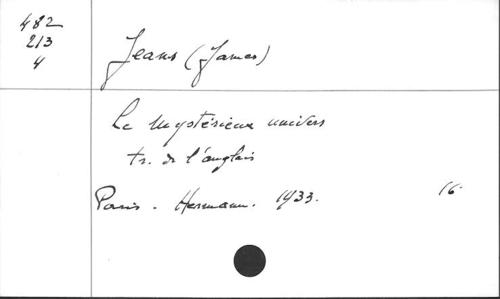 482
213
4
Jeans (James)
Le mystérieux univers
tr. de l'anglais
Paris. Hermann. 1933. 16